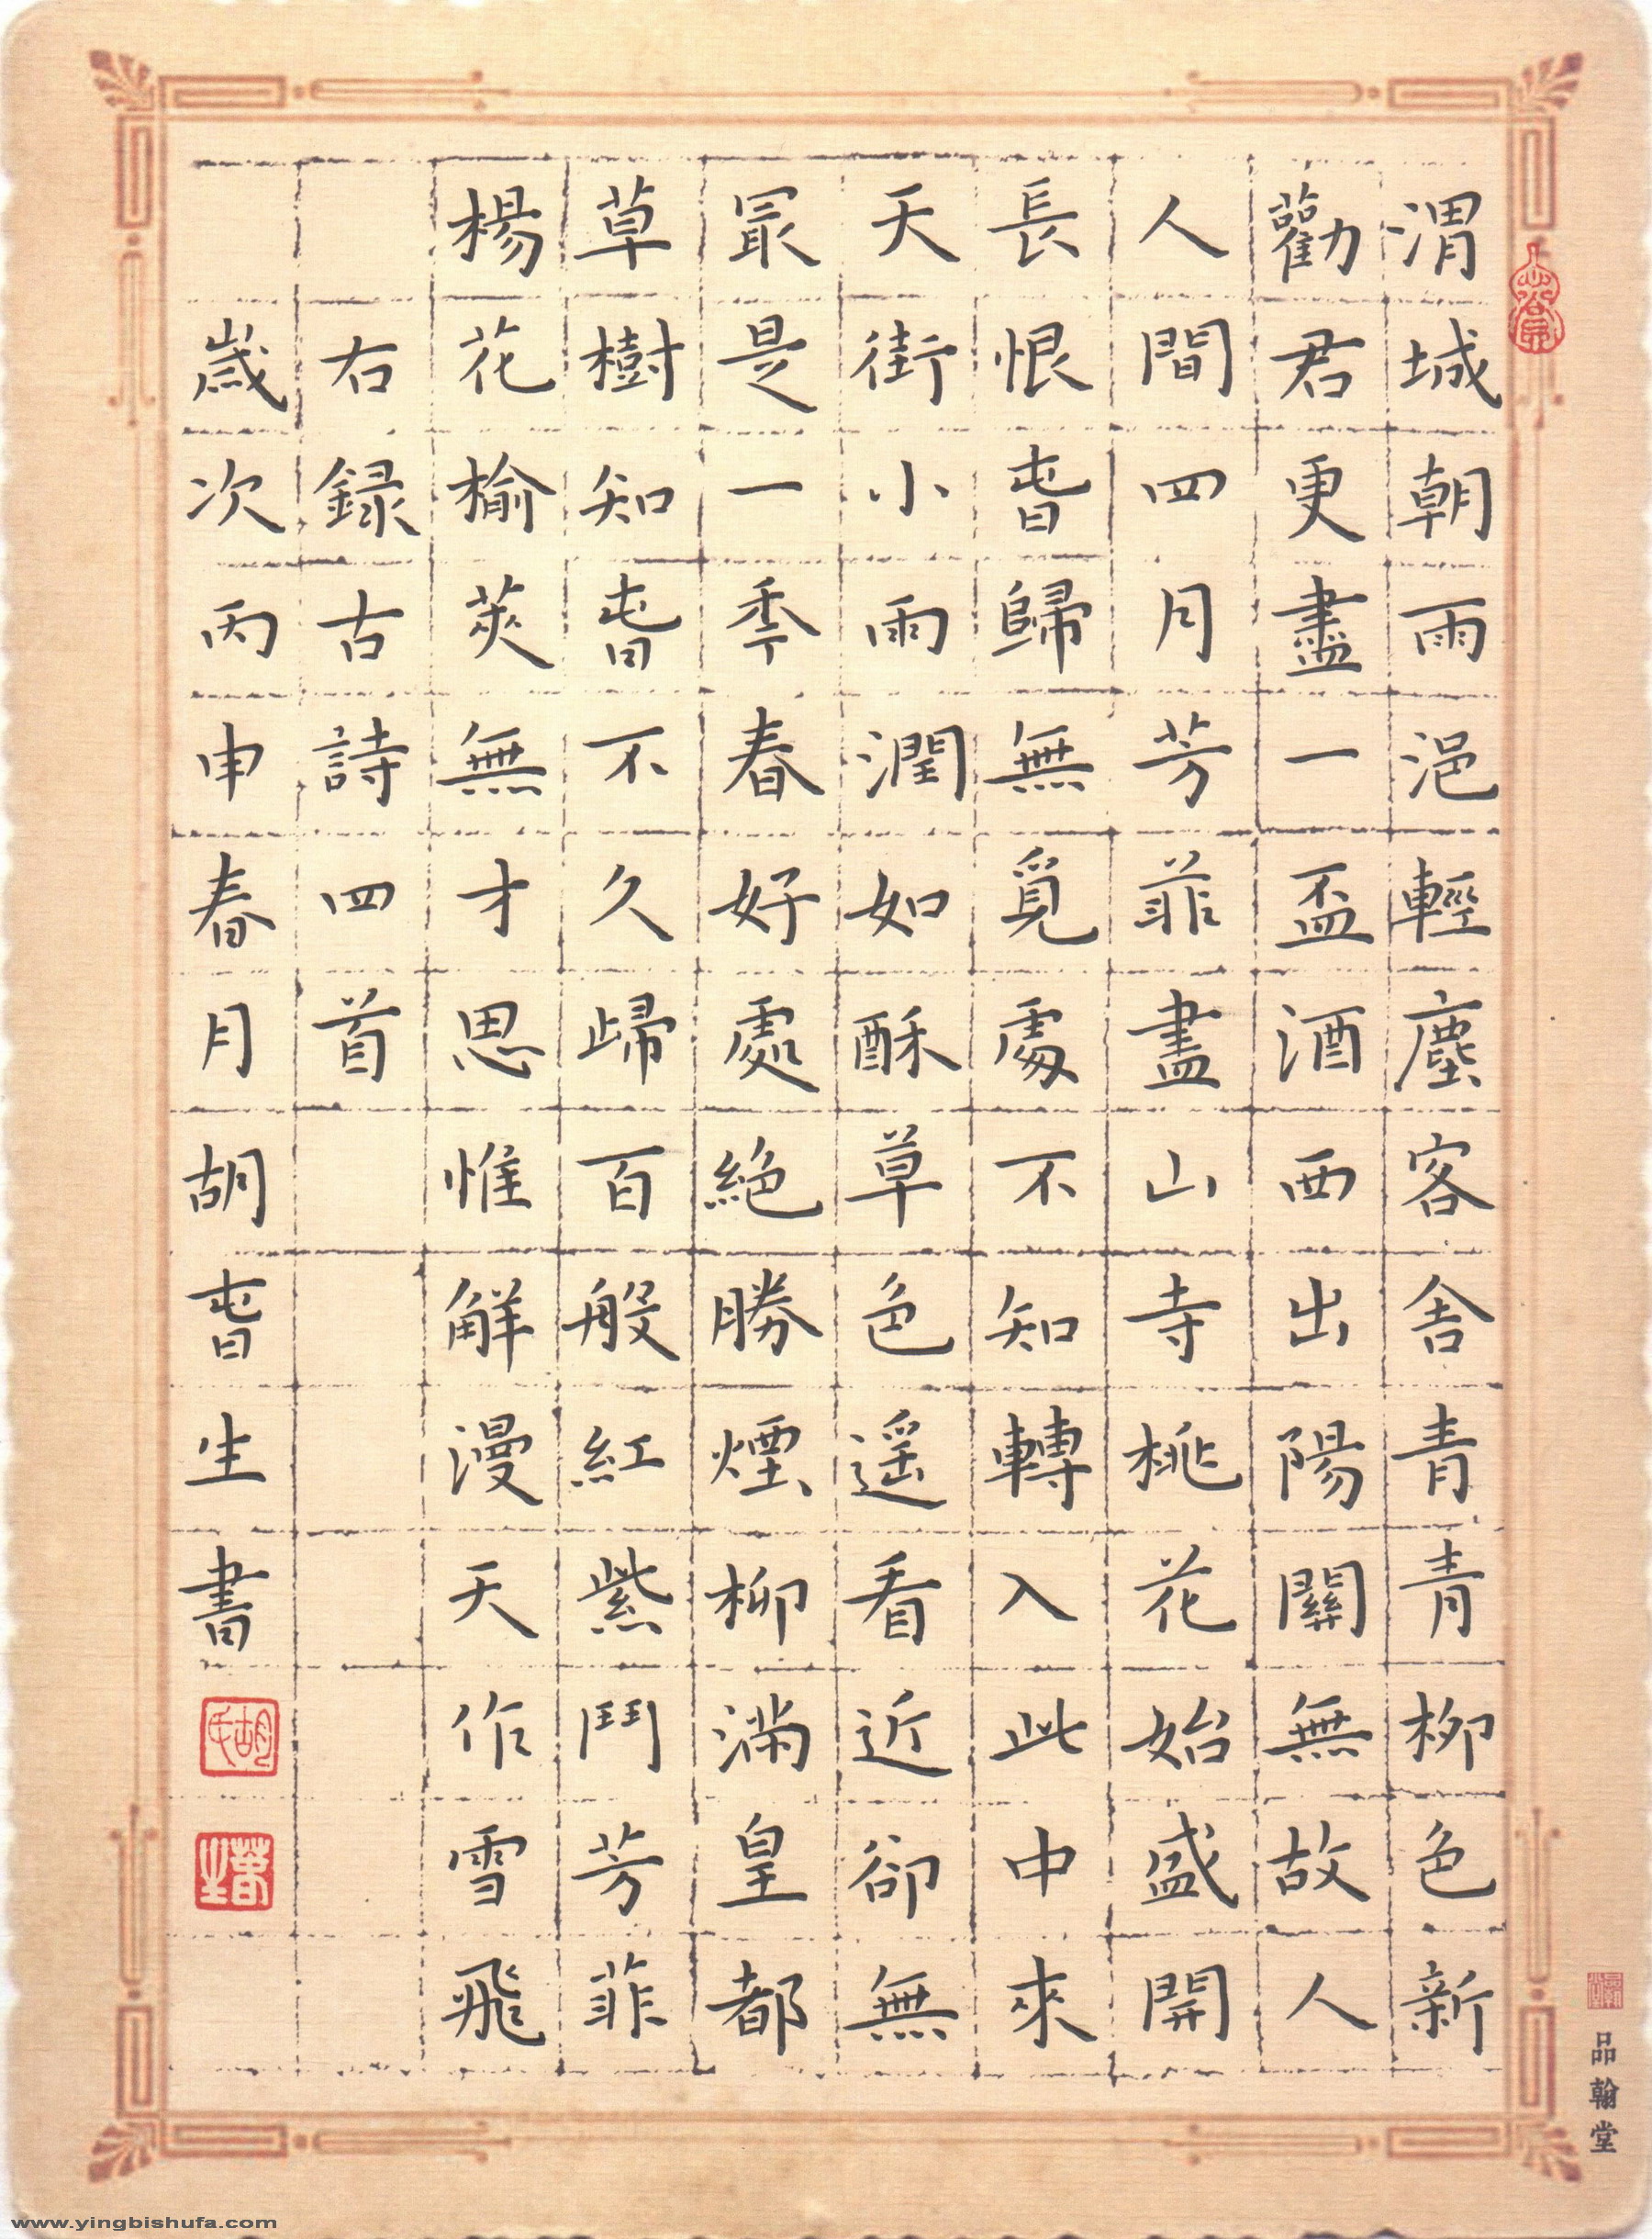 渭城朝雨浥輕塵客舍青青柳色新
勸君更盡一盃酒西出陽關無故人
人間四月芳菲盡山寺桃花始盛開
長恨旾歸無覓處不知轉入此中來
天街小雨潤如酥草色遥看近卻無
冣是一秊春好處絕勝煙柳滿皇都
草樹知旾不久歸百般紅紫鬥芳菲
楊花榆莢無才思惟解漫天作雪飛
右録古詩四首
歲次丙申春月胡旾生書
胡氏
品翰堂
www.yingbishufa.com